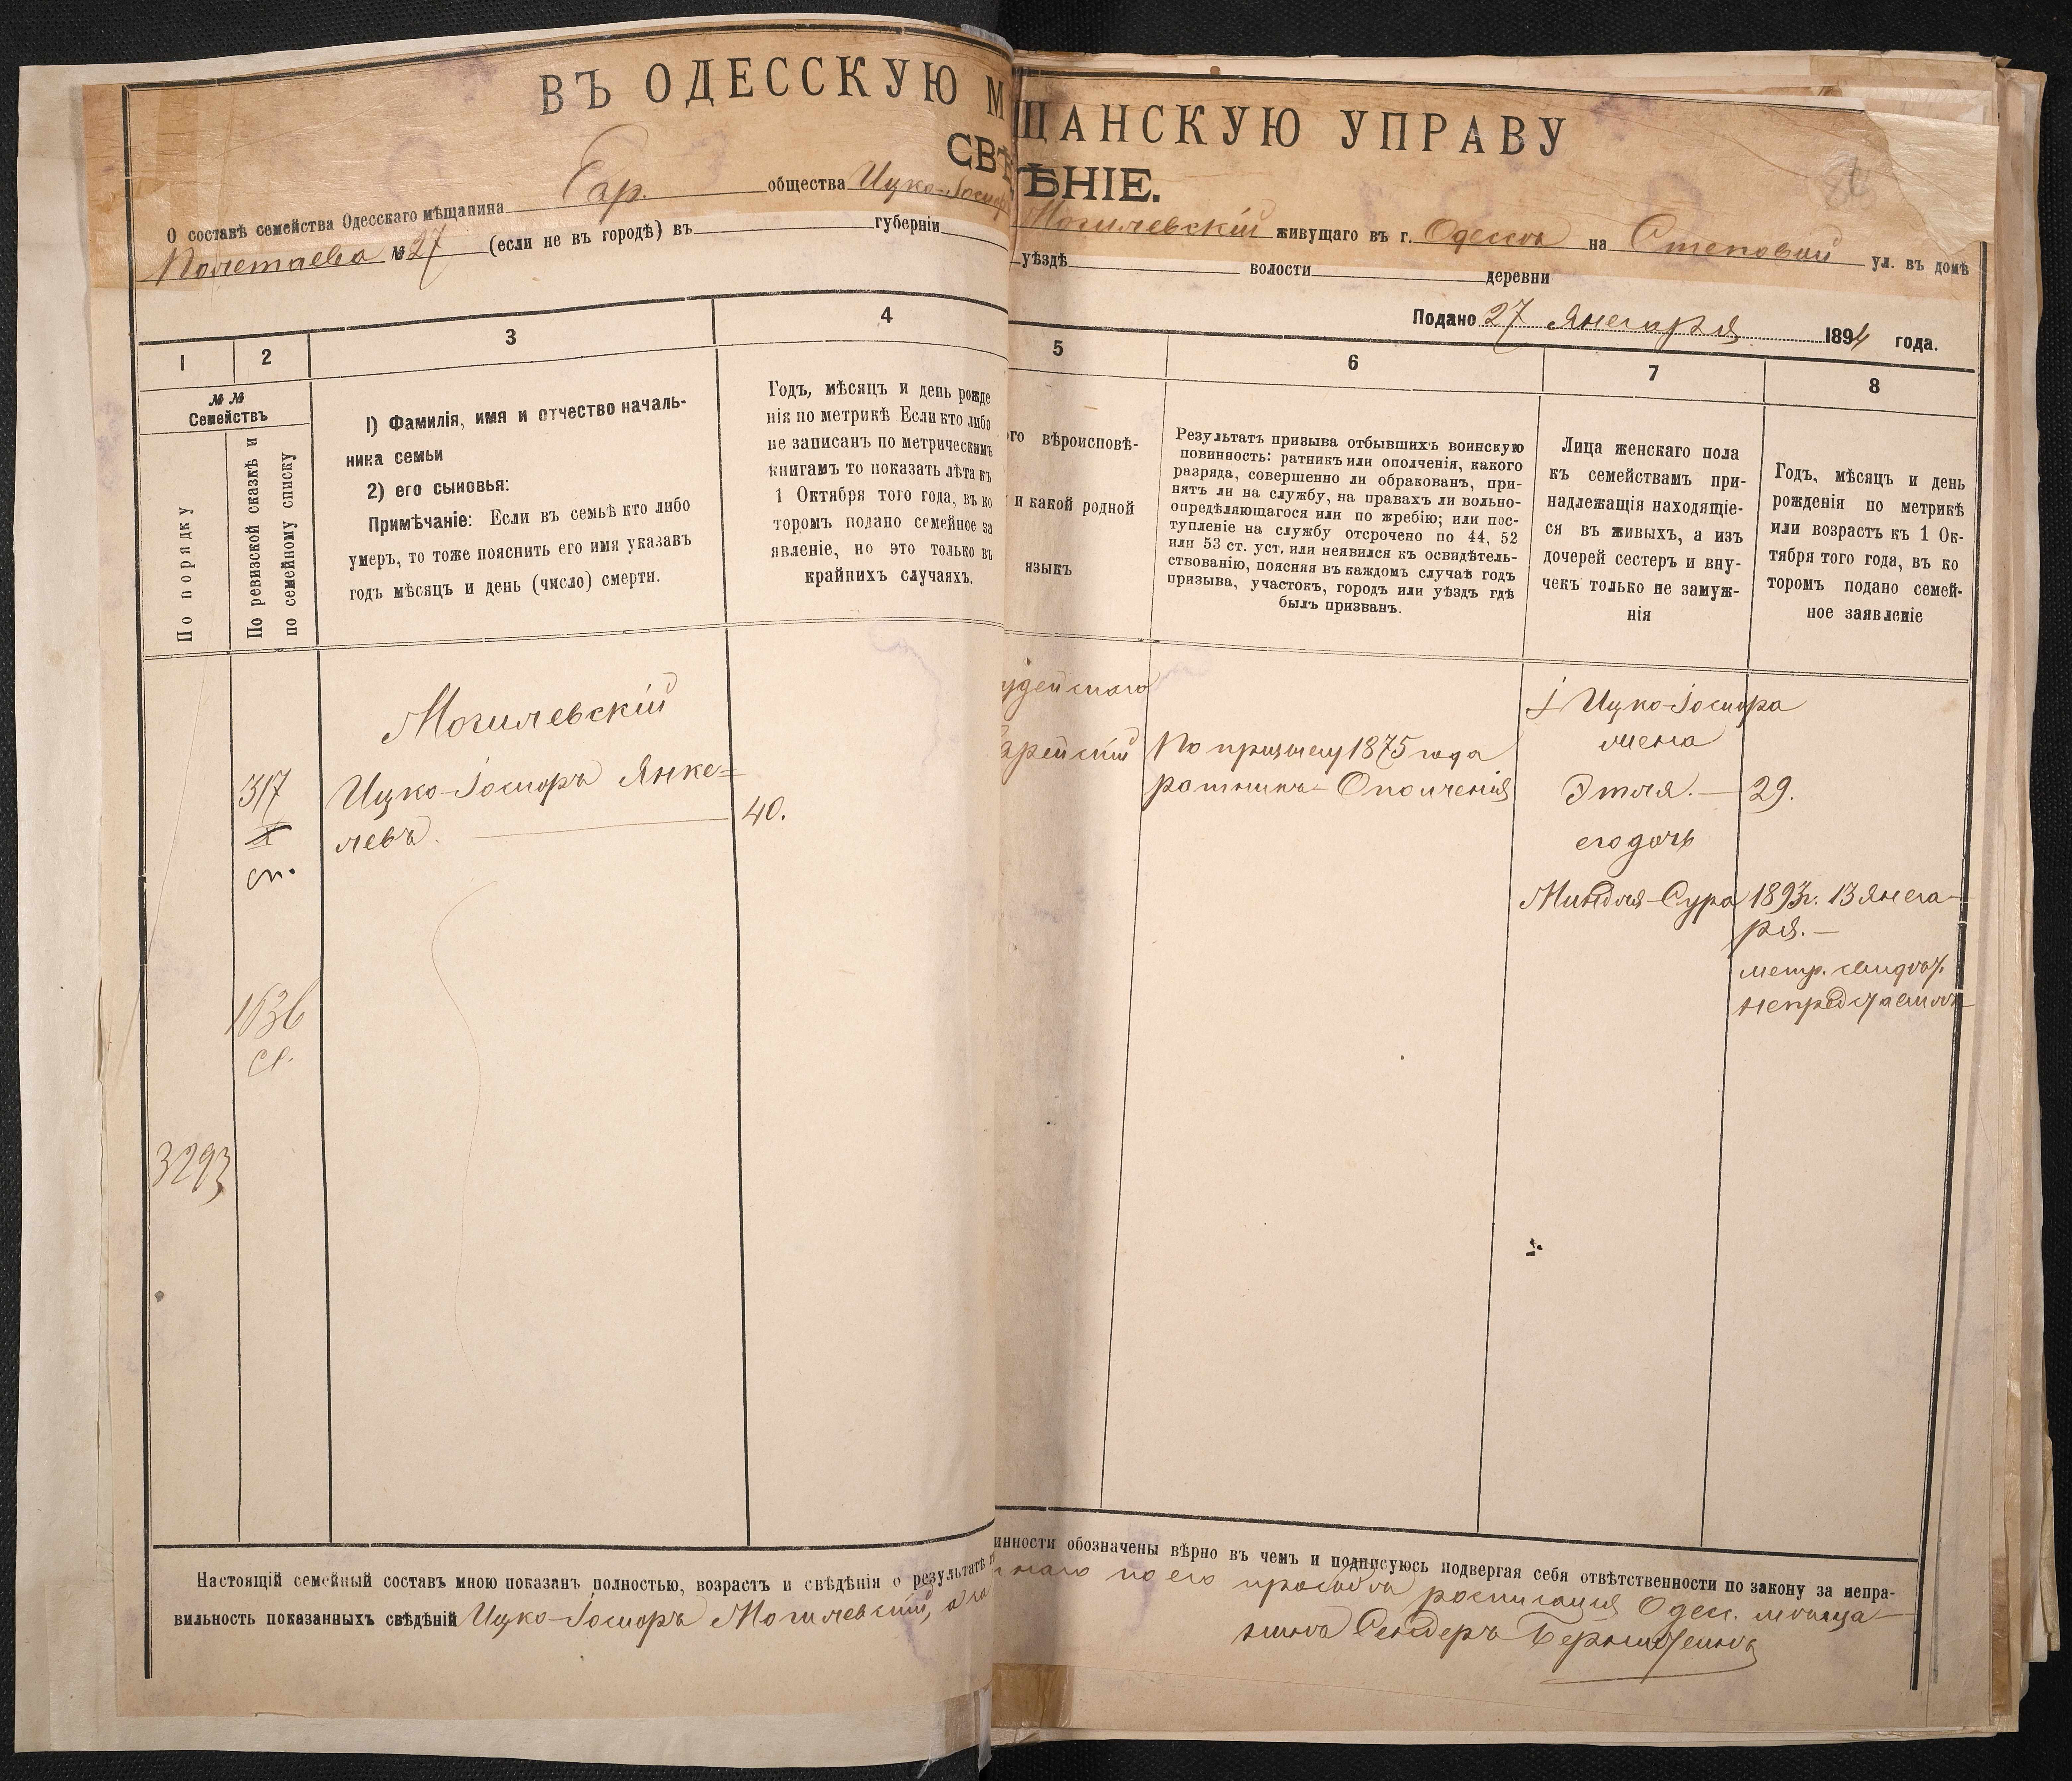 ВЪ ОДЕССКУЮ М ЩАНСКУЮ УПРАВУ
СВѢ ѢНІЕ.
О составѣ семейства Одесскаго мѣщанина Евр. общества Ицко-Іосифъ Могилевскій живущаго въ г. Одессѣ на Степовой ул. въ домѣ
Полетаева № 27 (если не въ городѣ) въ губерніи уѣздѣ волости деревни
Подано 27 Января 1894 года.
1 2 3 4 5 6 7 8
№ №
Семействъ
По порядку
По ревизской сказкѣ и
по семейному списку
1) Фамилія, имя и отчество началь-
ника семьи
2) его сыновья:
Примѣчаніе: Если въ семьѣ кто либо
умеръ, то тоже пояснить его имя указавъ
годъ мѣсяцъ и день (число) смерти.
Годъ, мѣсяцъ и день рожде
нія по метрикѣ Если кто либо
не записанъ по метрическимъ
книгамъ то показать лѣта къ
1 Октября того года, въ ко
торомъ подано семейное за
явленіе, но это только въ
крайнихъ случаяхъ.
го вѣроисповѣ-
и какой родной
языкъ
Результатъ призыва отбывшихъ воинскую
повинность: ратникъ или ополченія, какого
разряда, совершенно ли обракованъ, при-
нятъ ли на службу, на правахъ ли вольно-
опредѣляющагося или по жребію; или пос-
тупленіе на службу отсрочено по 44, 52
или 53 ст. уст. или неявился къ освидѣтель-
ствованію, поясняя въ каждомъ случаѣ годъ
призыва, участокъ, городъ или уѣздъ гдѣ
былъ призванъ.
Лица женскаго пола
къ семействамъ при-
надлежащія находящіе-
ся въ живыхъ, а изъ
дочерей сестеръ и вну-
чекъ только не замуж-
нія
Годъ, мѣсяцъ и день
рожденія по метрикѣ
или возрастъ къ 1 Ок-
тября того года, въ ко
торомъ подано семей-
ное заявленіе
Могилевскій
317
сп.
Ицко-Іосифъ Янке=
левъ.
40.
удейскаго
врейскій
По призыву 1875 года
ратникъ Ополченія
Ицко-Іосифа
жена
Этля. 29.
его дочь
Миндля-Сура 1893г. 13 Янва-
ря.
метр. свидѣт.
непредставилъ
1636
ст.
3293
Настоящій семейный составъ мною показанъ полностью, возрастъ и свѣдѣнія о результатѣ инности обозначены вѣрно въ чемъ и подписуюсь подвергая себя отвѣтственности по закону за непра-
вильность показанныхъ свѣдѣній Ицко-Іосифъ Могилевскій, а за наго по его просьбѣ росписался Одес. мѣща-
нинъ Сендеръ Бернштейнъ